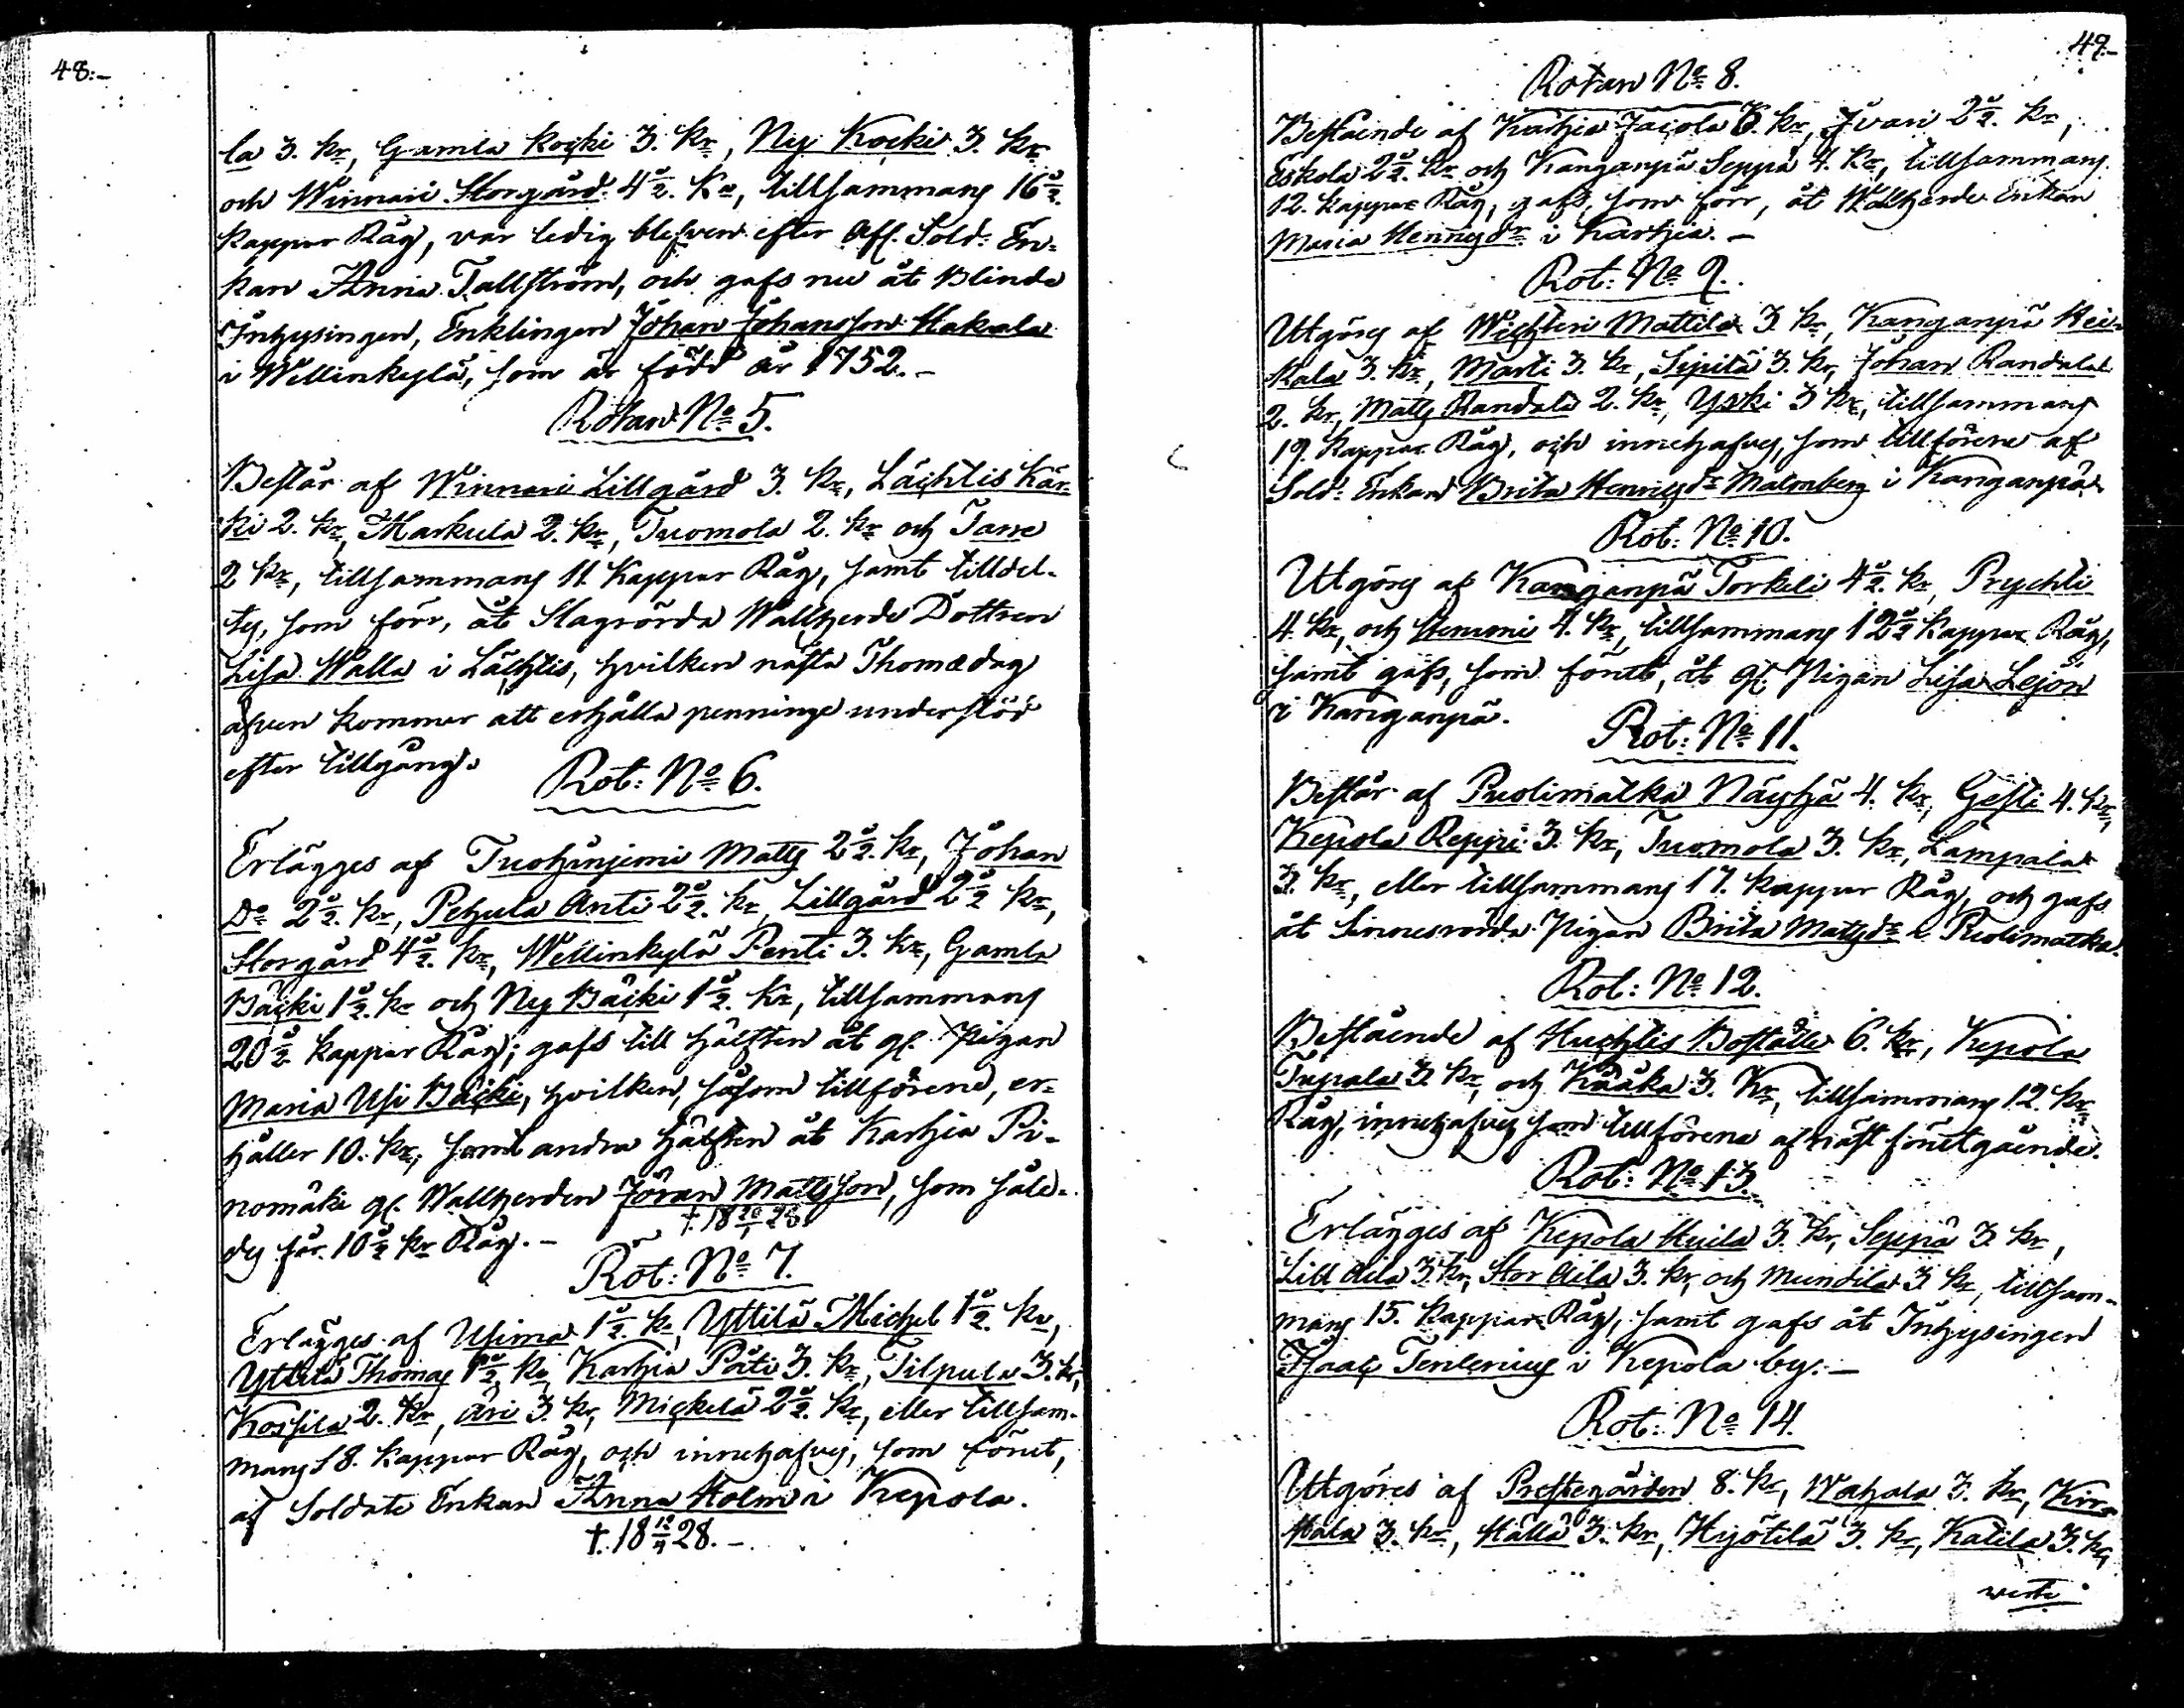 48.-
la 3. kr, Gamla Koski 3. kr, Ny Koski 3. kr
och Winnari Storgård 4½. kr, tillsammans 16½.
kappar Råg, var ledig blefven efter Afl. Sold: En-
kan Anna Tallström, och gafs nu åt Blinde
Inhysingen, Enklingen Johan Johansson Hakala
i Wellinkylä, som är född år 1752.-
Rotan No 5.
Består af Winnari Lillgård 3. kr, Lächtis Kär-
ki 2. kr, Markula 2. kr, Tuomola 2. kr och Tarre
2 kr, tillsammans 11 Kappar Råg, samt tilldel-
tes, som förr, åt Slagrörda Wallherde Dottren
Lisa Walla i Lächtis, hvilken nästa Thomædag
äfven kommer att erhålla penninge understöd
efter tillgång.
Rot: No 6.
Erlägges af Tuohiniemi Matts 2½. kr, Johan
Do 2½. kr, Pehula Anti 2½. kr, Lillgård 2½ kr,
Storgård 4½. kr, Wellinkylä Penti 3. kr, Gamla
Bäcki 1½. kr och Ny Bäcki 1½. kr, tillsammans
20½ kappar Råg; gafs till hälften åt gl. Pigan
Maria Usi Bäcki, hvilken, såsom tillförene, er-
håller 10. kr, samt andra hälften åt Karhia Pi-
nomäki gl. Wallherden Jöran Mattsson, som såle-
des får 10½ kr Råg.-
†. 18 20/1 28.
Rot: No 7.
Erlägges af Usima 1½. kr, Yttilä Michel 1½. kr,
Yttilä Thomas 1½ kr, Karhia Päti 3. kr, Tilpula 3. kr,
Kossila 2. kr, Äri 3. kr, Mickelä 2½. kr, eller tillsam-
mans 18. Kappar Råg, och innehafves, som förut,
af Soldate Enkan Anna Holm i Kepola.
†. 18 12/4 28.-
49.-
Rotan No 8.
Bestående af Karhia Jaiola 3. kr, Ivari 2½. kr,
Eskola 2½. kr och Kanganpä Seppä 4. kr, tillsammans
12. kappar Råg, gafs, som förr, åt Wallherde Enkan
Maria Hennesdr i Karhia.-
Rot: No 9.
Utgöres af Wichteri Mattila 3. kr, Kanganpä Hei-
kala 3. kr, Marti 3. kr, Sipilä 3. kr, Johan Randala
2. kr, Matts Randala 2. kr, Yski 3 kr, tillsammans
19. kappar Råg, och innehafves, som tillförene af
Sold: Enkan Brita Henricsdr Malmberg i Kanganpä
Rot: No 10.
Utgöres af Kanganpä Torkeli 4½. kr, Prychti
4. kr, och Hemmi 4. kr, tillsammans 12½ Kappar Råg,
samt gafs, som förut, åt gl. Pigan Lisa Lejon
i Kanganpä.
Rot: No 11.
Består af Puolimatka Näyhä 4. kr, Gesti 4. kr,
Kepola Reppi 3. kr, Tuomola 3. kr, Lampala
3. kr, eller tillsammans 17. kappar Råg, och gafs
åt Sinnesrörda Pigan Brita Mattsdr i Puolimatka.
Rot: No 12.
Bestående af Huchtis Boställe 6. kr, Kepola
Tupala 3. kr, och Knaka 3. kr, tillsammans 12. kr
Råg, innehafves som tillförene af näst föregående.
Rot: No 13.
Erlägges af Kepola Huila 3. kr, Seppä 3. kr,
Lill Aila 3. kr, Stor Aila 3. kr, och Mundila 3 kr, tillsam-
mans 15. kappar Råg, samt gafs åt Inhysingen
Isaac Tenlenius i Kepola by.-
Rot: No 14.
Utgöres af Prestegården 8. kr, Wahala 3. kr, Kir-
kala 3. kr, Hälla 3. kr, Hyötilä 3. kr, Katila 3. kr,
verte